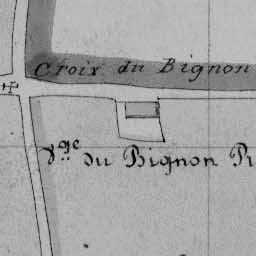 Croix du Bignon
Vge du Bignon